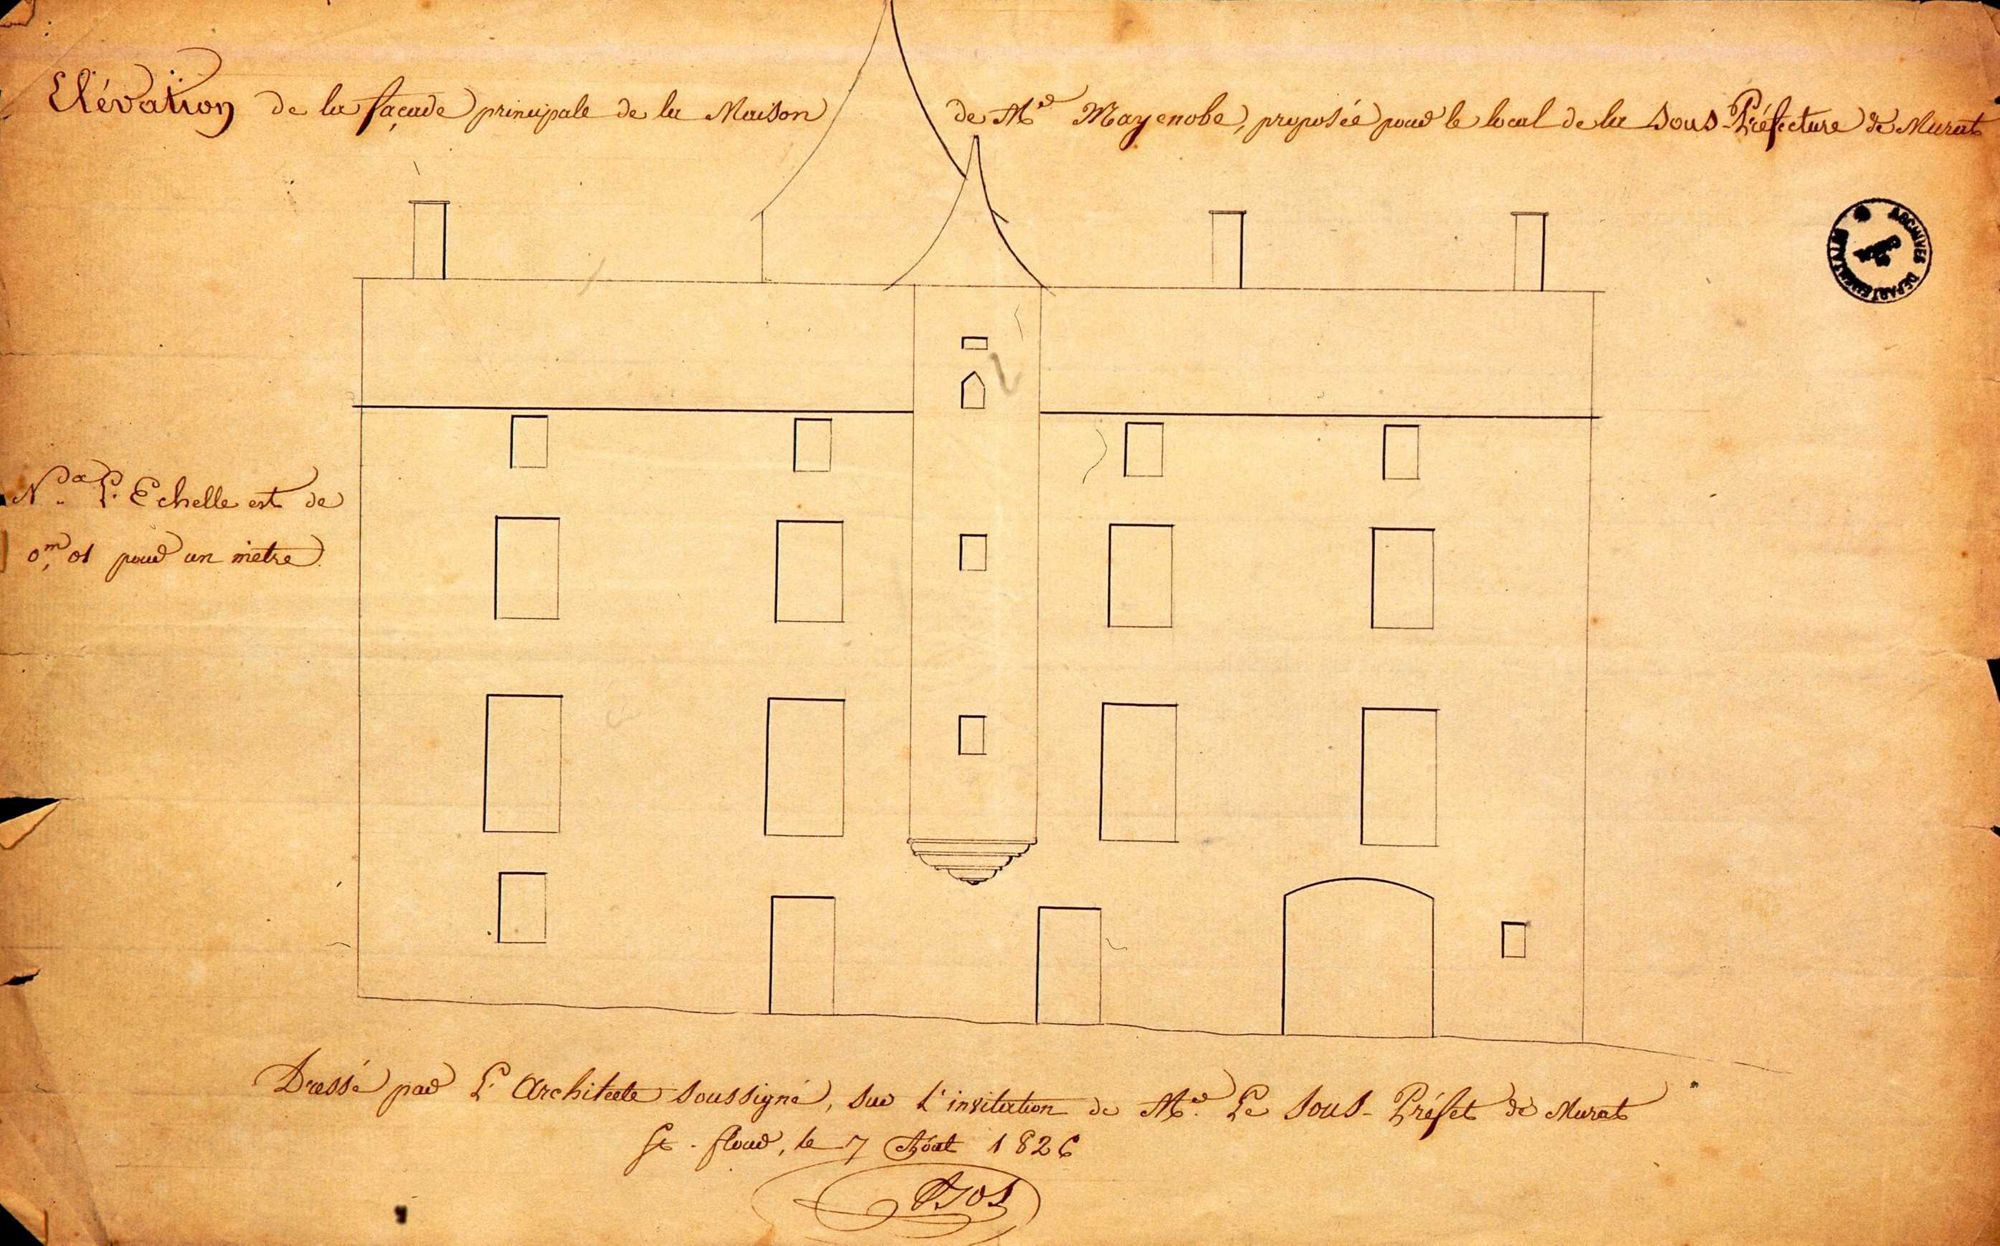 Elévation de la façade principale de la Maison de Mr Mayenobe, proposée pour le local de la Sous-Préfecture de Murat
ARCHIVES DÉPARTEMENTALES
Nota L'Echelle est de
0,m01 pour un mètre.
Dressé par L'Architecte soussigné, sur L'invitation de Mr. Le Sous-Préfet de Murat
St-flour, le 7 Août 1826